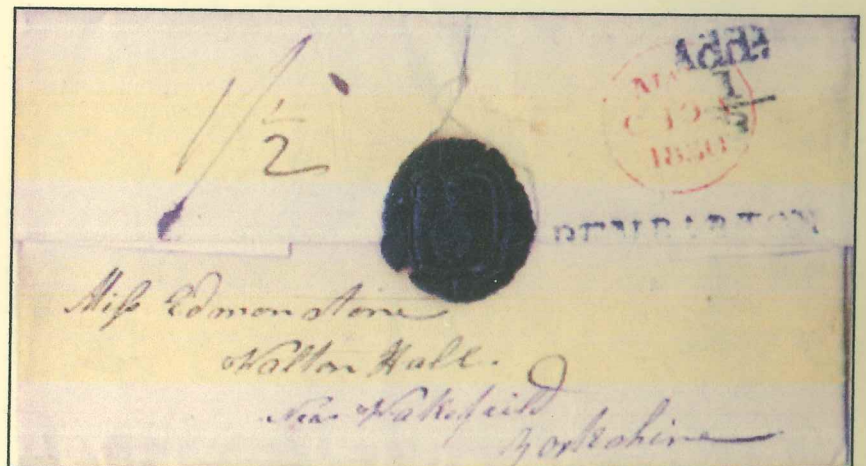 Addl
1/2
1/
1/2
1830
DUMBARTON
Miss Edmonstone
Walton Hall.
Near Wakefield
Yorkshire